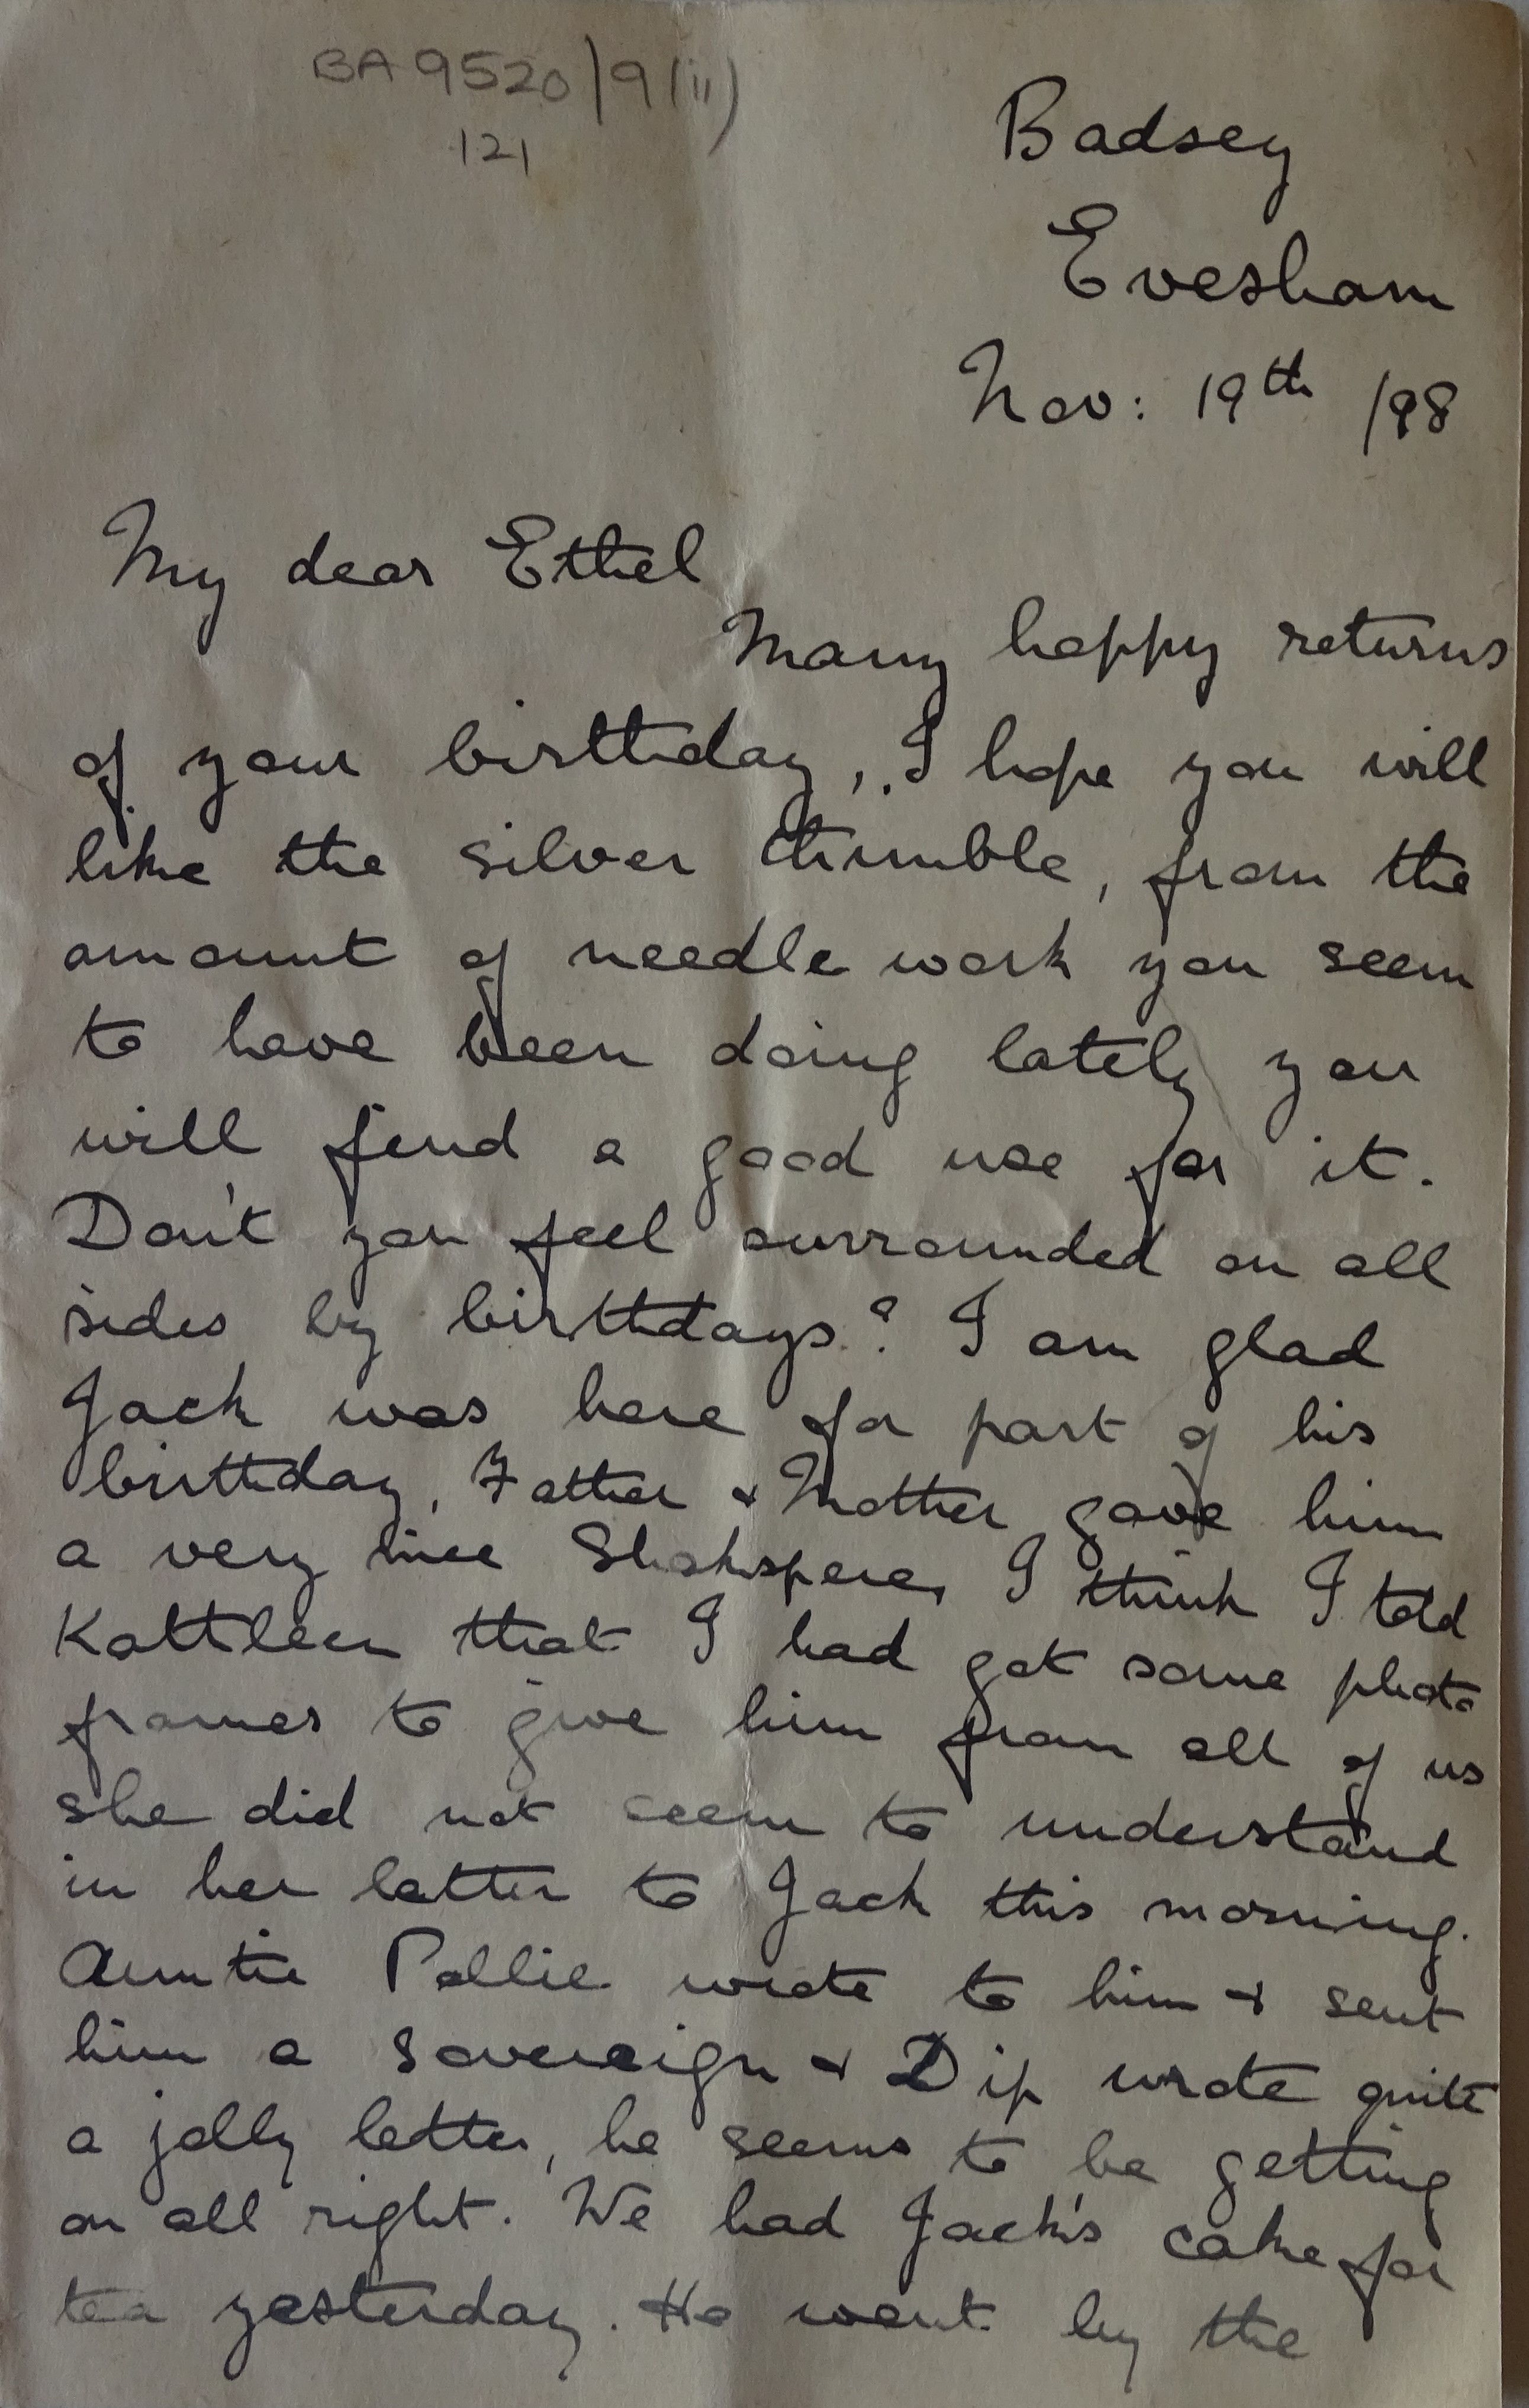 BA 9520/9(ii)
121
Badsey
Evesham
Nov: 19th /98
My dear Ethel
Many happy returns
of your birthday, I hope you will
like the silver thimble, from the
amount of needle work you seem
to have been doing lately you
will find a good use for it.
Don't you feel surrounded on all
sides by birthdays? I am glad
Jack was here for part of his
birthday, Father & Mother gave him
a very nice Shakspere, I think I told
Kathleen that I had got some photo
frames to give him from all of us
she did not seem to understand
in her letter to Jack this morning.
Auntie Pollie wrote to him & sent
him a sovereign & Dip wrote quite
a jolly letter, he seems to be getting
on all right. We had Jack's cake for
tea yesterday. He went by the